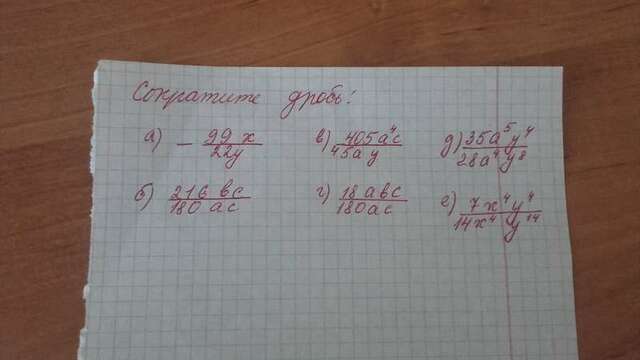 Сократите дробь:
а) - 99x/22y в) 405a⁴c/45ay д) 35a⁵y⁴/28a⁴y⁸
б) 216bc/180ac г) 18abc/180ac е) 7x⁴y⁴/14x⁴y¹⁴